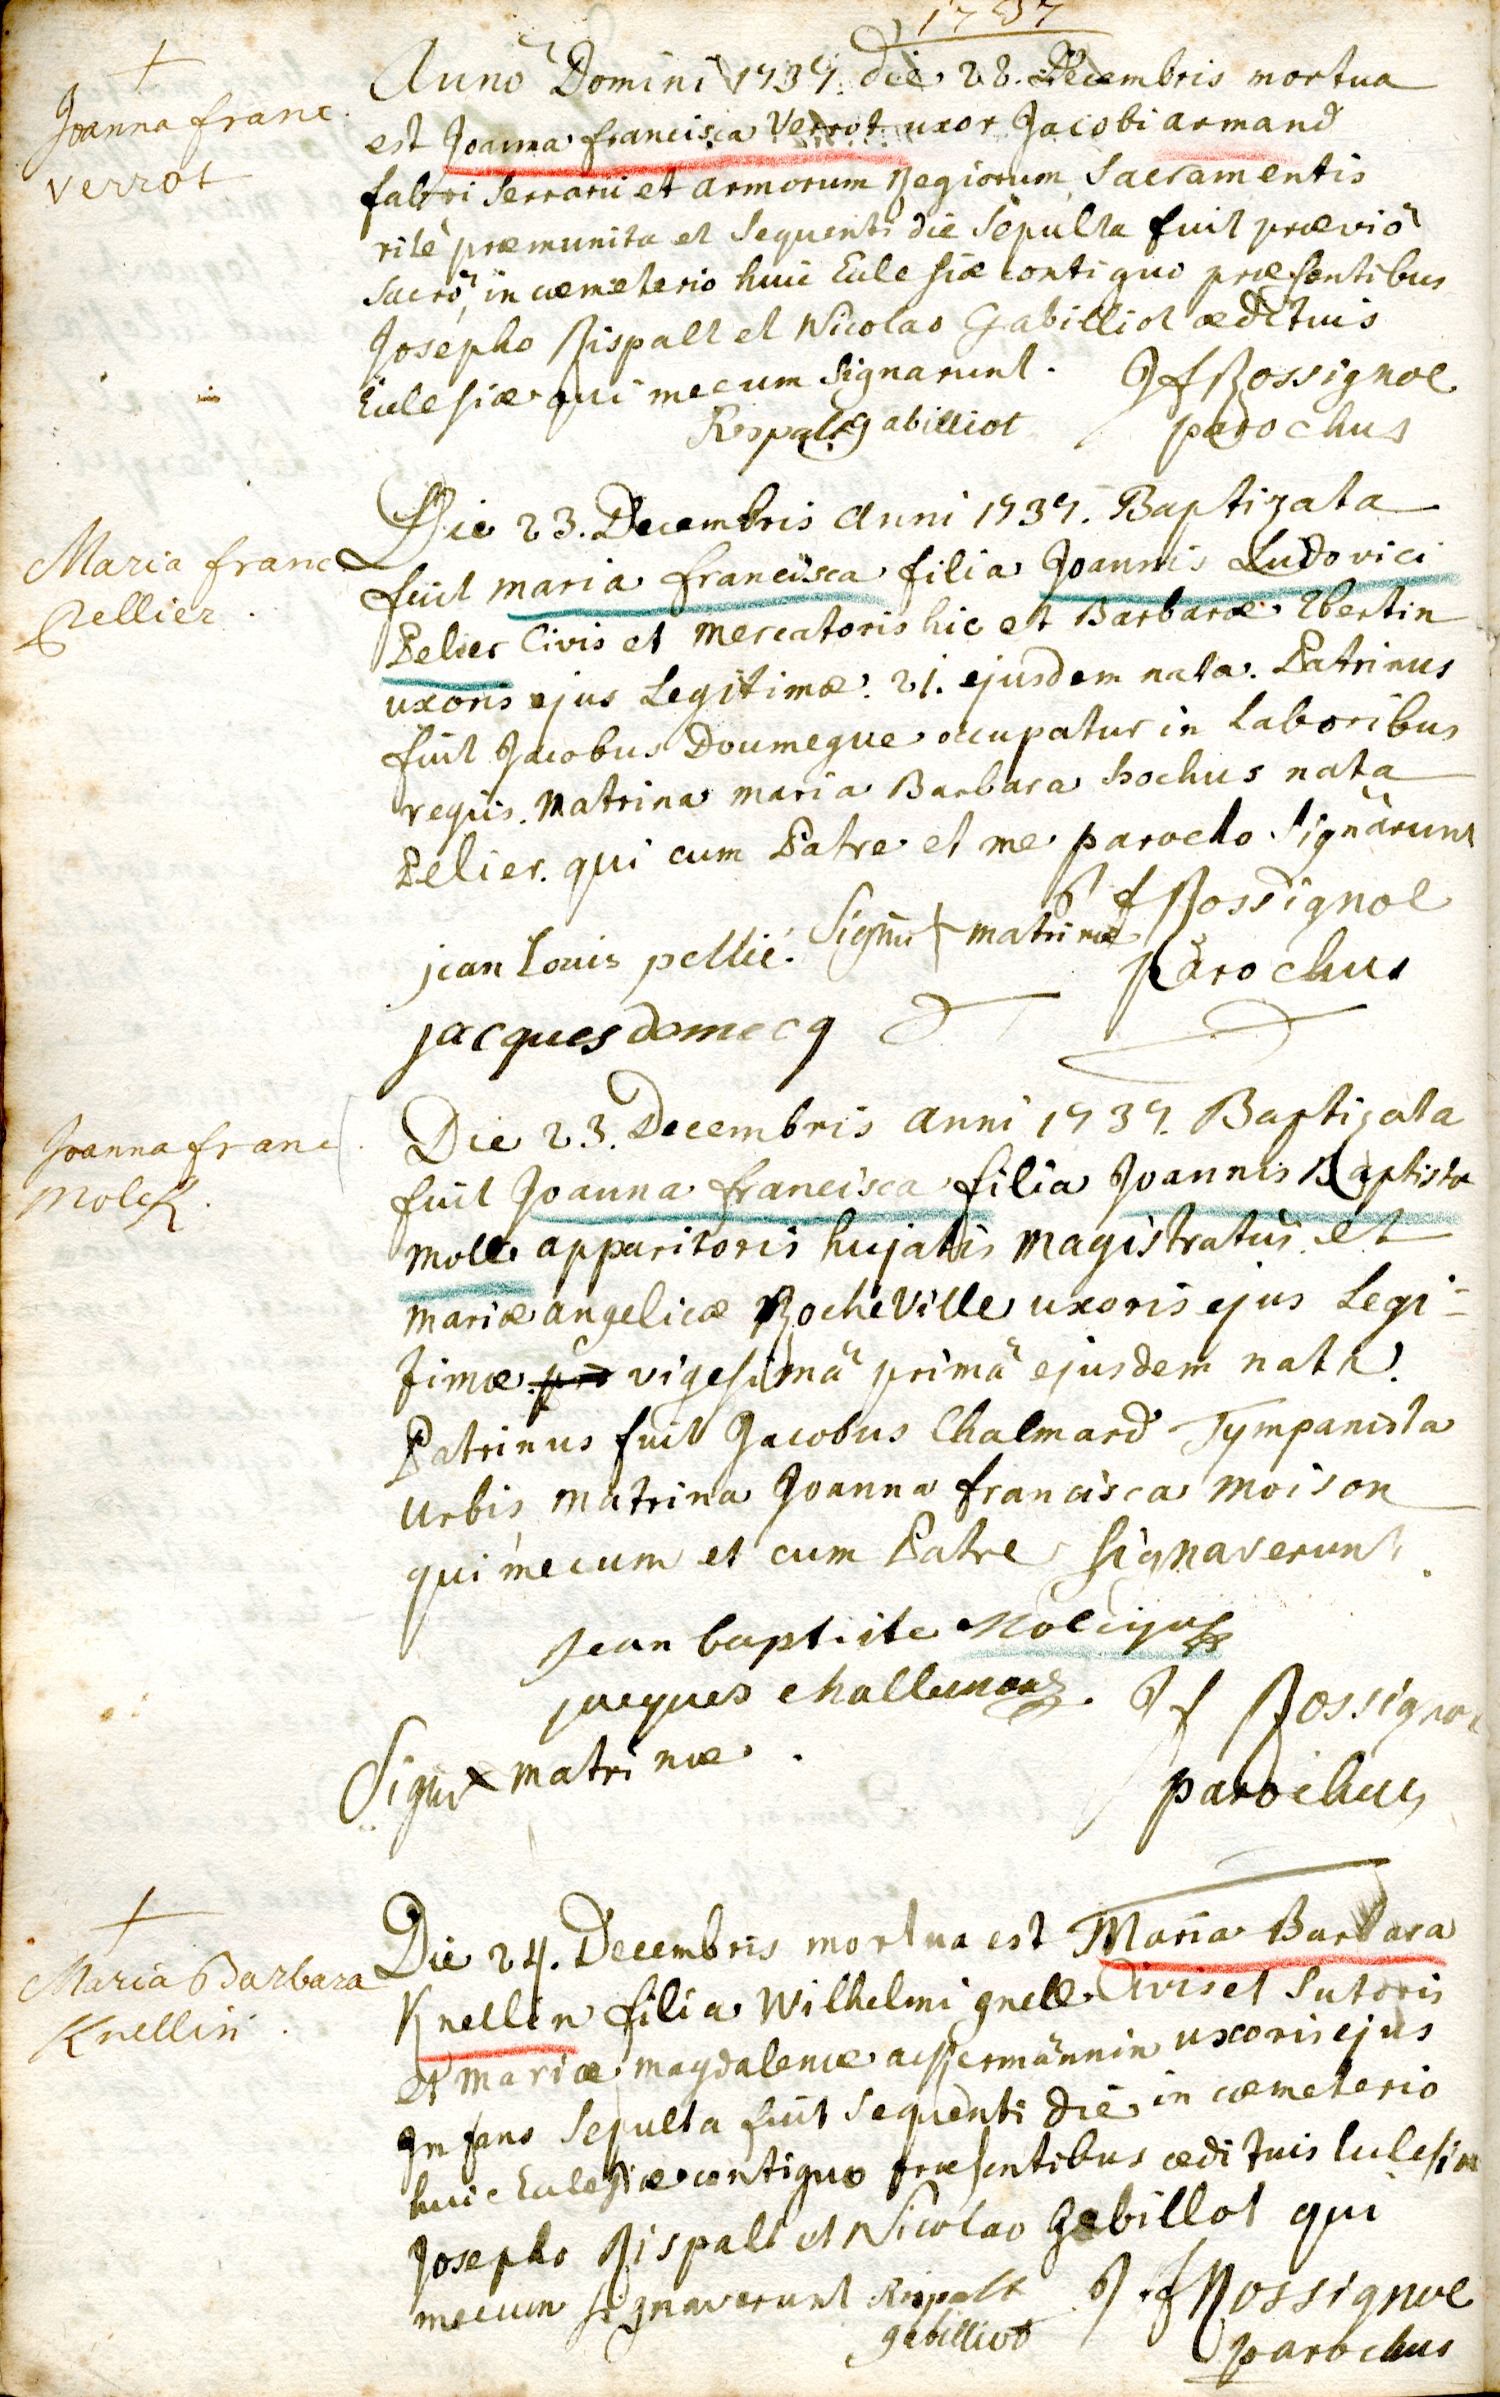 1737
†
Joanna franc.
verrot
Anno Domini 1737. die 22. Decembris mortua
est Joanna francisca Verrot uxor Jacobi armand
fabri serrarii et armorum Regiorum, Sacramentis
rite præmunita et sequenti die sepulta fuit prævio
sacro, in cœmeterio huic Eclesiæ contiguo præsentibus
Josepho Rispalt et Nicolao Gabilliot ædituis
Eclesiæ qui mecum signarunt. J f Rossignol
Rispalt gabilliot parochus
Maria franc
Pellier.
Die 23. Decembris anni 1737. Baptizata
fuit maria francisca filia Joannis Ludovici
Pelier Civis et mercatoris hic et Barbaræ Ebertin
uxoris ejus Legitimæ. 21. ejusdem nata. Patrinus
fuit Jacobus Doumegue occupatur in laboribus
regiis. Matrina maria Barbara hochus nata
Pelier. qui cum Patre et me parocho signarunt
J f Rossignol
jean Louis pellié. Signu + matrinæ parochus
jacques domecq
Joanna franc.
Molck.
Die 23. Decembris anni 1737. Baptizata
fuit Joanna francisca filia Joannis Baptista
Molle apparitoris hujatis Magistratus et
mariæ angelicæ Rocheville uxoris ejus Legi-
timæ vigesimâ primâ ejusdem nata.
Patrinus fuit Jacobus Chalmard Tympanista
urbis matrina Joanna francisca moison
qui mecum et cum Patre signaverunt.
Jean baptiste
jacques J f Rossignol
Signu x matrinæ. parochus
†
Maria Barbara
Knellin.
Die 24. Decembris mortua est Maria Barbara
Knellin filia Wilhelmi gnelle Civis et Sutoris
et mariæ magdalenæ ackermännin uxoris ejus
Infans sepulta fuit sequenti die in cœmeterio
huic Eclesiæ contiguo præsentibus ædituis Eclesiæ
Josepho Rispalt et Nicolao Gabillot qui
mecum signaverunt Rispalt J.f Rossignol
gabilliot parochus